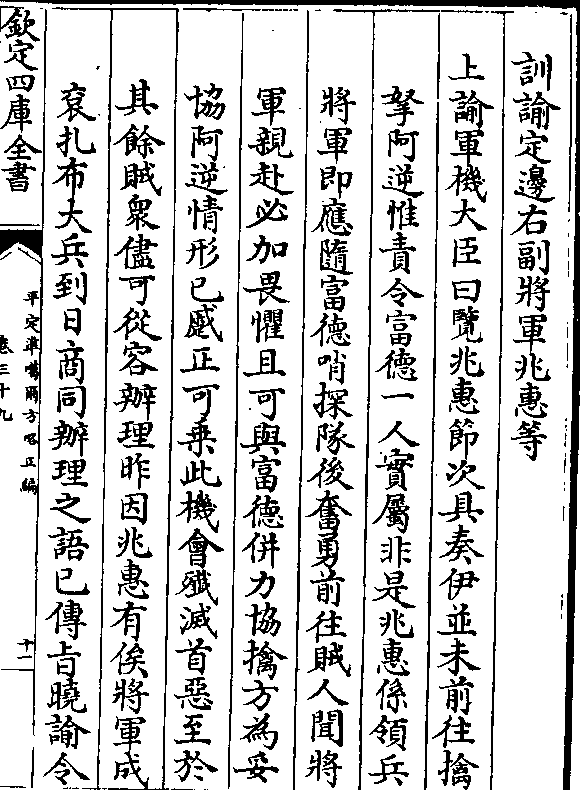 訓諭定邊右副將軍兆惠等
上諭軍機大臣曰覽兆惠節次具奏伊並未前往擒
拏阿逆惟責令富德一人實屬非是兆惠係領兵
將軍即應隨富德哨探隊後奮勇前往賊人聞將
軍親赴必加畏懼且可與富德併力協擒方為妥
協阿逆情形已蹙正可乗此機會殲滅首惡至於
其餘賊衆儘可從容辦理昨因兆惠有俟將軍成
袞扎布大兵到日商同辦理之語已傳㫖曉諭令
欽定四庫全書
平定準噶爾方畧正編
卷三十九
十一